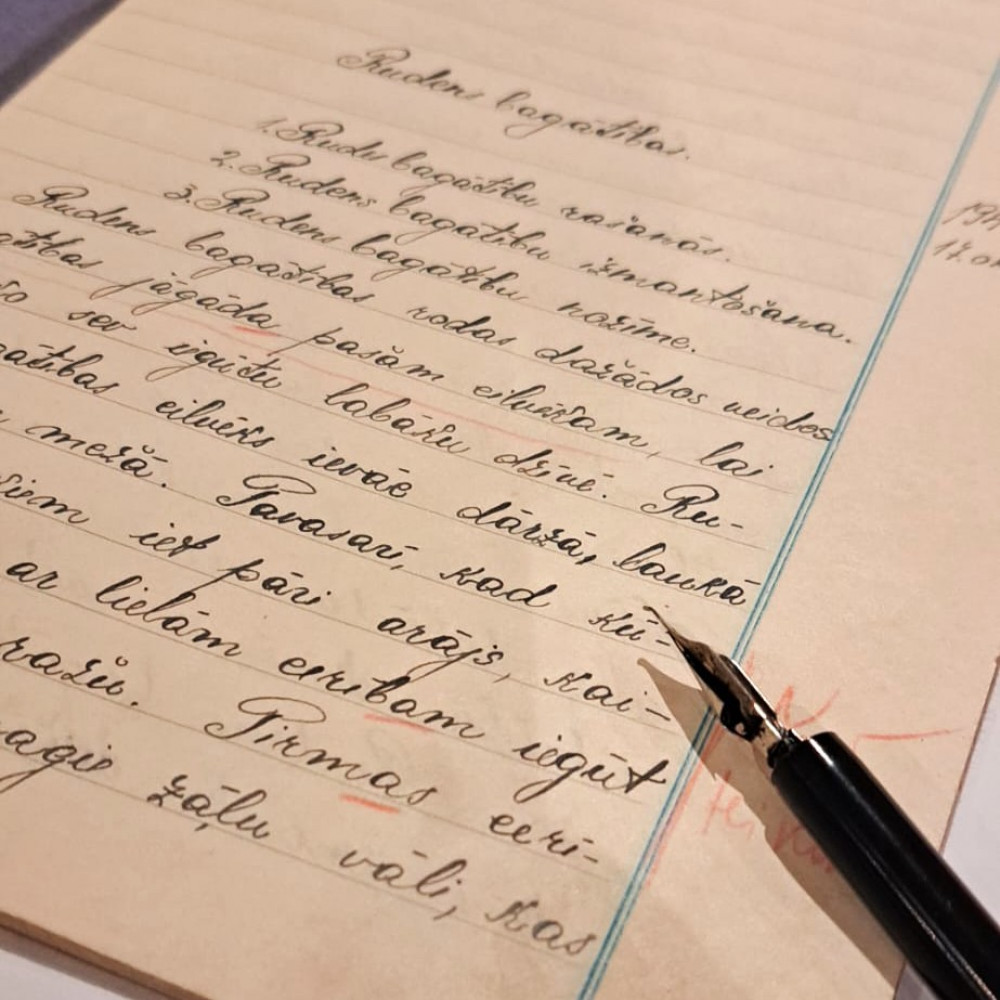 Rudens bagātības.
1. Rudens bagātību rašanās.
2. Rudens bagātību izmantošana.
3. Rudens bagātību nozīme.
Rudens bagātības rodas dažādos veidos
jāgāda pašam cilvēkam, lai
sev iegūtu labāku dzīvi. Ru-
cilvēks ievāc dārzā, laukā
mežā. Pavasarī, kad kū-
iet pāri arājs, kai-
ar lielām cerībam iegūt
ražu. Pirmas cerī-
zāļu vāli, kas